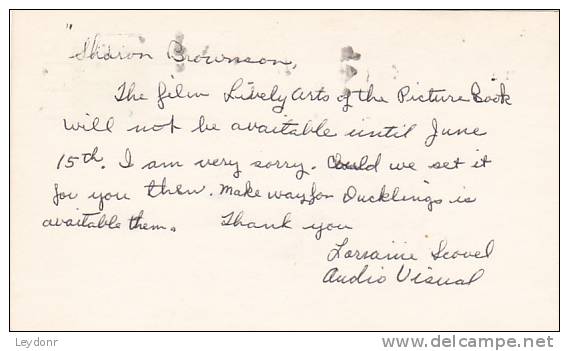 "Sharon Brownson,
The film Lively Arts of the Picture Book
will not be available until June
15th. I am very sorry. Could we set it
for you then. Make way for Ducklings is
available then. Thank you
Lorraine Scovel
Audio Visual
Leydonr
delcampe.net